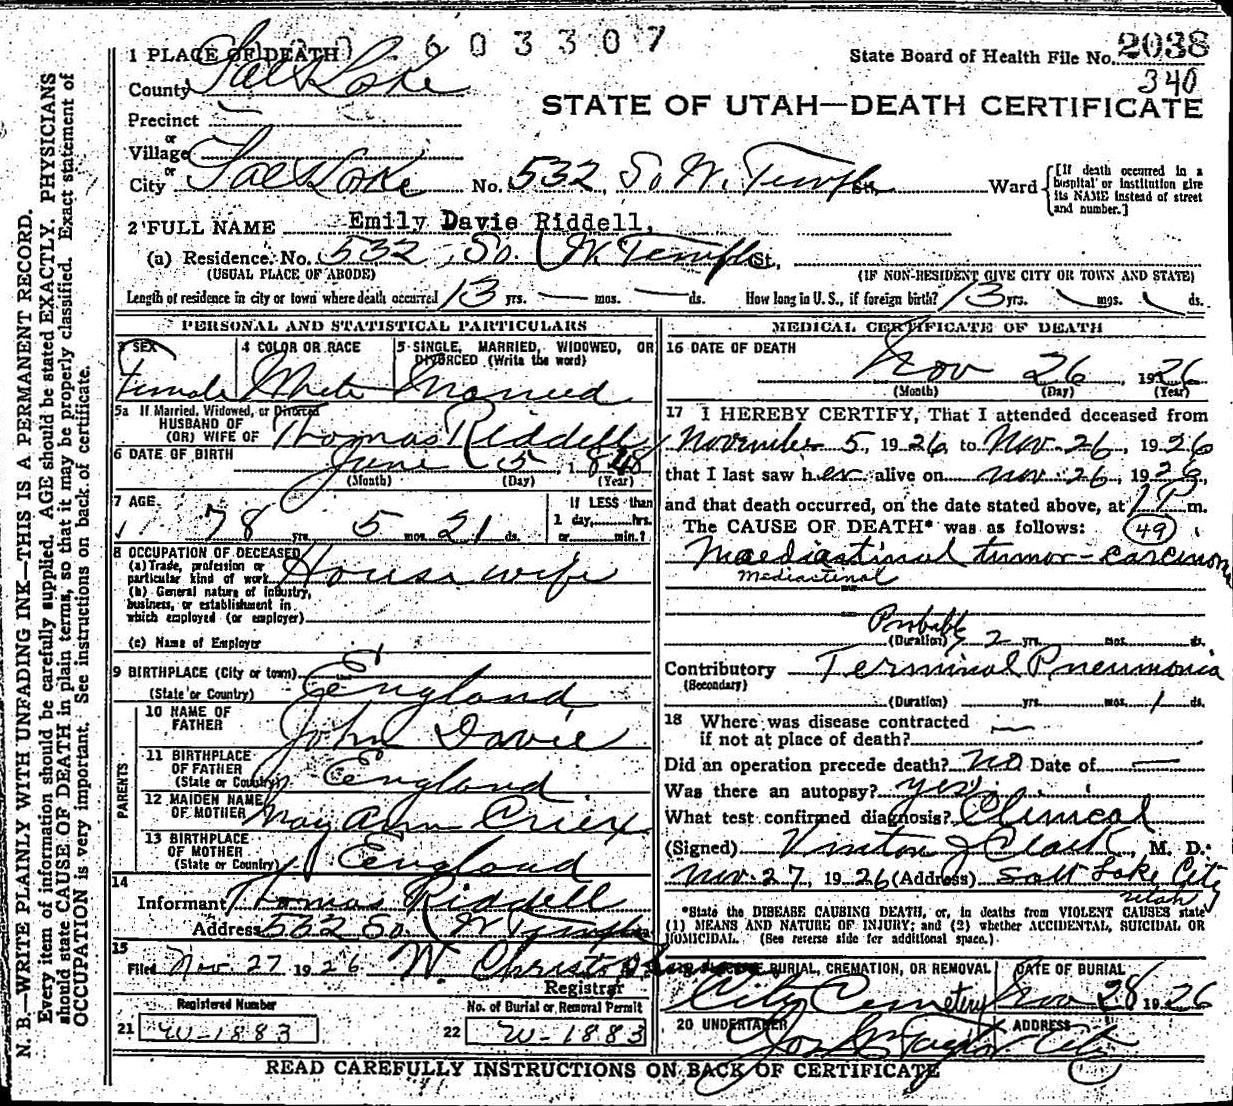 1 PLACE OF DEATH 603307 State Board of Health File No. 2038
340
County Salt Lake
STATE OF UTAH—DEATH CERTIFICATE
Precinct
or
Village
or
City Salt Lake No. 532, So W. Temple St. Ward {[If death occurred in a hospital or institution give its NAME instead of street and number.]
2 FULL NAME Emily Davie Riddell,
(a) Residence. No. 532, So. W. Temple St.,
(USUAL PLACE OF ABODE) (IF NON-RESIDENT GIVE CITY OR TOWN AND STATE)
Length of residence in city or town where death occurred 13 yrs. — mos. — ds. How long in U. S., if foreign birth? 13 yrs. mos. ds.
PERSONAL AND STATISTICAL PARTICULARS
3 SEX 4 COLOR OR RACE 5 SINGLE, MARRIED, WIDOWED, OR DIVORCED (Write the word)
Female White Married
5a If Married, Widowed, or Divorced
HUSBAND OF
(OR) WIFE OF Thomas Riddell
6 DATE OF BIRTH June 5, 1848
(Month) (Day) (Year)
7 AGE If LESS than
78 yrs. 5 mos. 21 ds. 1 day,......hrs.
or......min.?
8 OCCUPATION OF DECEASED
(a) Trade, profession or
particular kind of work Housewife
(b) General nature of industry,
business, or establishment in
which employed (or employer)
(c) Name of Employer
9 BIRTHPLACE (City or town)
(State or Country) England
PARENTS
10 NAME OF
FATHER John Davie
11 BIRTHPLACE
OF FATHER
(State or Country) England
12 MAIDEN NAME
OF MOTHER Mary Ann
13 BIRTHPLACE
OF MOTHER
(State or Country) England
14
Informant Thomas Riddell
Address 532 So. W Temple
15
Filed Nov. 27 1926 W. Christopherson
Registrar
Registered Number No. of Burial or Removal Permit
21 W-1883 22 W-1883
MEDICAL CERTIFICATE OF DEATH
16 DATE OF DEATH
Nov 26, 1926
(Month) (Day) (Year)
17 I HEREBY CERTIFY, That I attended deceased from
November 5, 1926, to Nov. 26, 1926
that I last saw her alive on Nov. 26, 1926,
and that death occurred, on the date stated above, at 1 P m.
The CAUSE OF DEATH* was as follows: 49
Maediastinal tumor - carcinoma
Mediastinal
Probably
(Duration) 2 yrs. mos. ds.
Contributory Terminal Pneumonia
(Secondary)
(Duration) yrs. mos. 1 ds.
18 Where was disease contracted
if not at place of death? —
Did an operation precede death? No Date of —
Was there an autopsy? yes
What test confirmed diagnosis? Clinical
(Signed) Vinton J Clark, M. D.
Nov. 27, 1926 (Address) Salt Lake City
Utah
*State the DISEASE CAUSING DEATH, or, in deaths from VIOLENT CAUSES state
(1) MEANS AND NATURE OF INJURY; and (2) whether ACCIDENTAL, SUICIDAL OR
HOMICIDAL. (See reverse side for additional space.)
BURIAL, CREMATION, OR REMOVAL DATE OF BURIAL
City Cemetery Nov 28 1926
20 UNDERTAKER ADDRESS
Jos Taylor City
READ CAREFULLY INSTRUCTIONS ON BACK OF CERTIFICATE
N. B.—WRITE PLAINLY WITH UNFADING INK—THIS IS A PERMANENT RECORD.
Every item of information should be carefully supplied. AGE should be stated EXACTLY. PHYSICIANS
should state CAUSE OF DEATH in plain terms, so that it may be properly classified. Exact statement of
OCCUPATION is very important. See instructions on back of certificate.